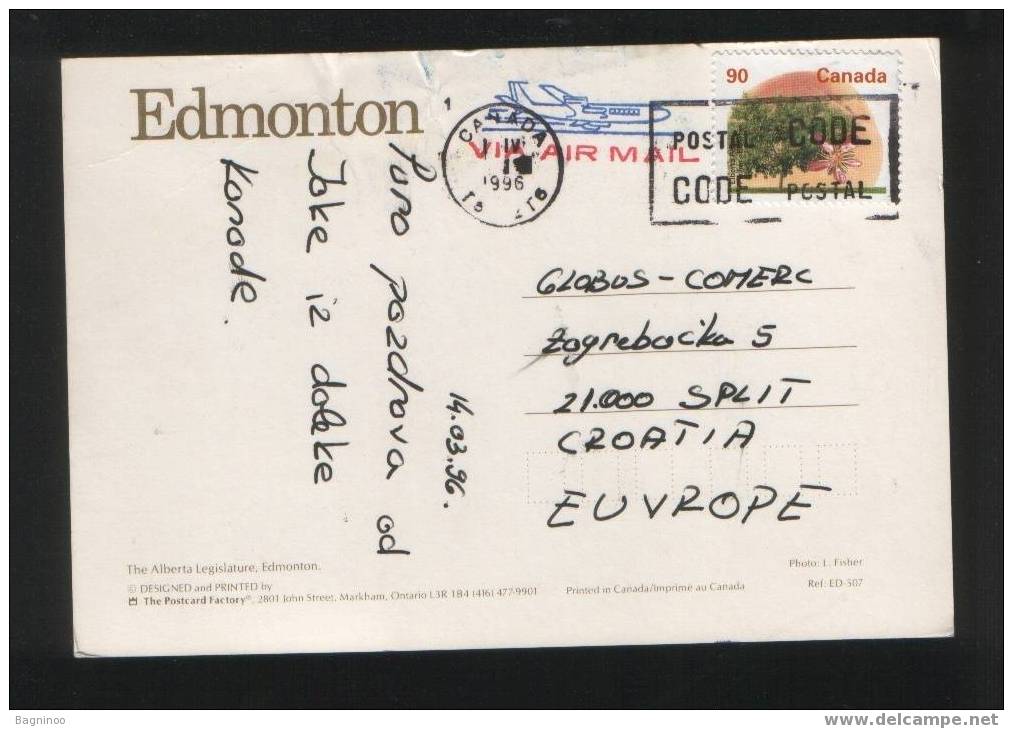 Edmonton
1
CANADA
IV
1996
VIA AIR MAIL
90 Canada
POSTAL CODE
CODE POSTAL
Puno pozdrava od
Joke iz daleke
Kanade.
14.03.96.
GLOBUS-COMERC
Zagrebačka 5
21.000 SPLIT
CROATIA
EUVROPE
The Alberta Legislature, Edmonton.
© DESIGNED and PRINTED by
The Postcard Factory®, 2801 John Street, Markham, Ontario L3R 1B4 (416) 477-9901
Printed in Canada/Imprimé au Canada
Photo: L. Fisher
Ref: ED-507
Bagninoo
www.delcampe.net